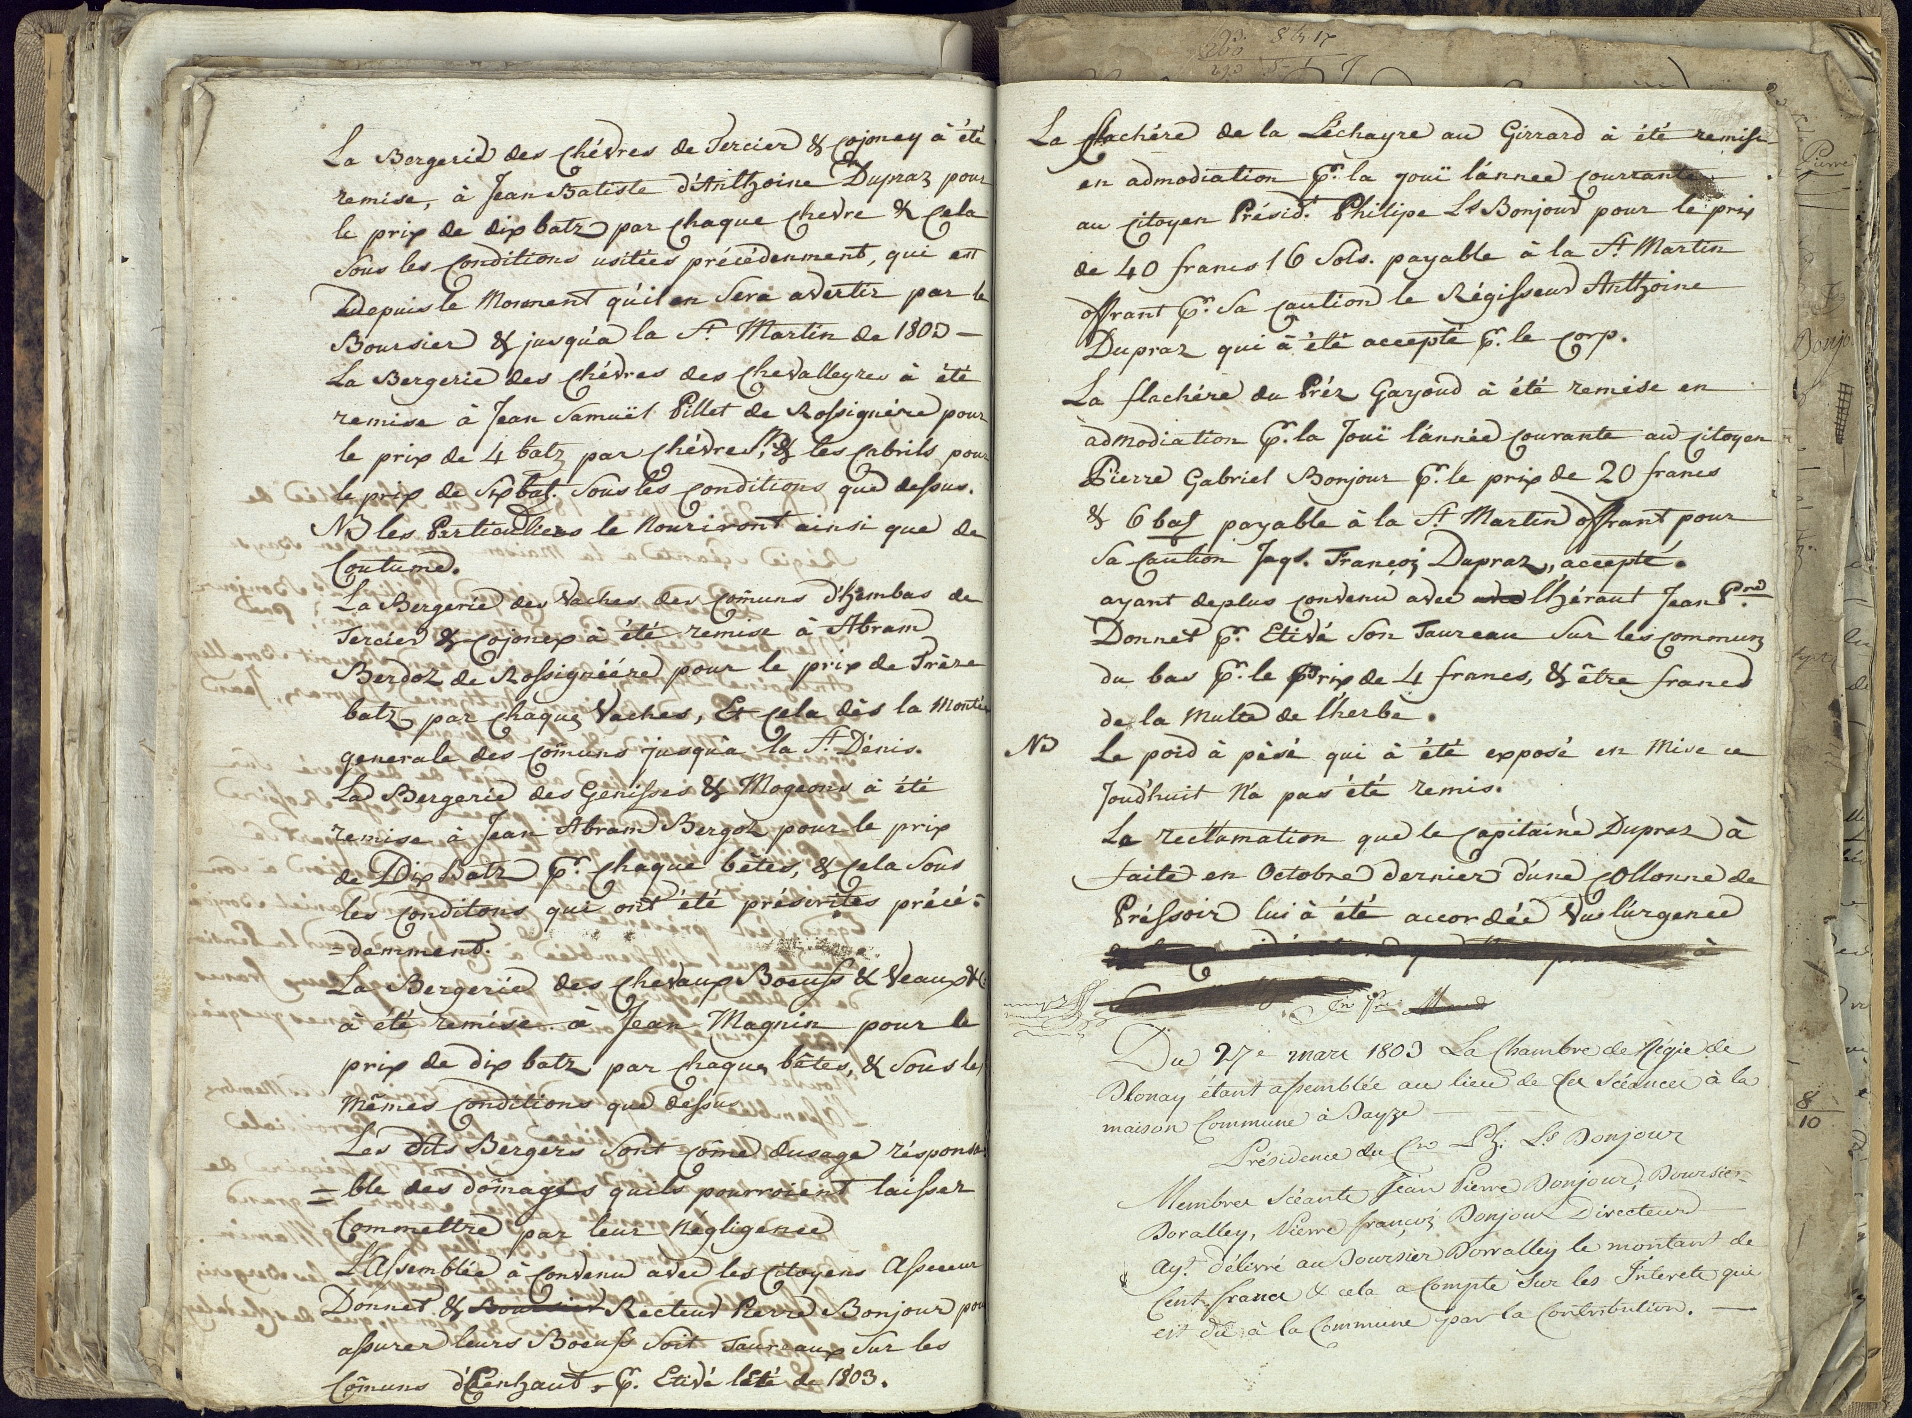 La Bergerie des Chévres de Tercier & Cojonex à été
remise, à Jean Batiste d'Anthoine Dupraz pour
le prix de dix batz par chaque Chevre & Cela
sous les Conditions usitées précédemment, qui est
depuis le Moment qu'il en sera avertir par le
Boursier & jusqu'a la St. Martin de 1803 —
La Bergerie des Chévres des Chevalleyres à été
remise à Jean Samuël Pillet de Rossignére pour
le prix de 4 batz par Chévres, & les Cabrils pour
le prix de Six bat. Sous les Conditions que dessus.
NB les Particuliers le Nouriront ainsi que de
Coutume.
La Bergerie des Vaches des Comuns d'Enbas de
Tercier & Cojonex à été remise à Abram
Berdoz de Rossigniére pour le prix de Trêze
batz par Chaque Vaches, Et Cela dès la Montée
generale des Comuns jusqu'a la St. Dénis.
La Bergerie des Genisses & Mogeons à été
remise à Jean Abram Bergoz pour le prix
de Dix Batz pr. Chaque bêtes, & Cela Sous
les Conditons qui ont été préscrittes précé=
=demment.
La Bergerie des Chevaux Boeufs & Veaux &c
à été remise à Jean Magnin pour le
prix de dix batz par Chaque bêtes, & Sous les
Mêmes Conditions que dessus
Les dits Bergers Sont Côme dusage résponsa
=ble des domages quils pourroient laisser
Commettre par leur Négligence
L'Assemblée à Convenu avec les Citoyens Assesseur
Donnet & Boursier Recteur Pierre Bonjour pour
assurer leurs Boeufs Soit Taureaux Sur les
Cômuns d'Enhaut, pr. Etivé lété de 1803.
La flachére de la Léchayre au Girrard à été remise
en admodiation pr. la jouï lánnee Courrante
au Citoyen Présidt. Philipe Ls Bonjour pour le prix
de 40 francs 16 Sols. payable à la St. Martin
offrant pr. Sa Caution le Régisseur Anthoine
Dupraz qui à été accepté pr. le Corp.
La flachére du Préz Gayoud à été remise en
admodiation pr. la Jouï lánnée Courante au Citoyen
Pierre Gabriel Bonjour pr. le prix de 20 francs
& 6 bat payable à la St. Martin offrant pour
Sa Caution Jaqs. François Dupraz,, accepté.
ayant deplus Convenu avec l'héraut Jean Pre
Donnet pr. Etivé Son Taureau Sur les Communs
du bas pr. le Prix de 4 francs, & être francs
de la Multe de l'herbe.
NB Le poid à pèsé qui à été exposé en Mise ce
Jourdhuit N'a pas été remis.
La réclamation que le Capitaine Dupraz à
faite en Octobre dernier d'une Collonne de
Préssoir lui à été accordée Vu l'urgence
à
Du 27e mars 1803 La Chambre de Régie de
Blonay étant assemblée au lieu de ses Séances à la
maison Commune à Bayze
Présidence du Cn Ph. Ls Bonjour
Membres Scéants Jean Pierre Bonjour, Boursier
Boralley, Pierre françois Bonjour Directeur
Ayt. délivré au Boursier Borralley le montant de
Cent francs & cela a Compte Sur les Interets qui
est du à la Commune par la Contribution. —
8
10